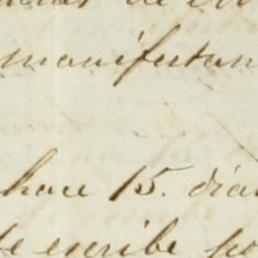 de
manifestan
hace 15. dias
te escribe po